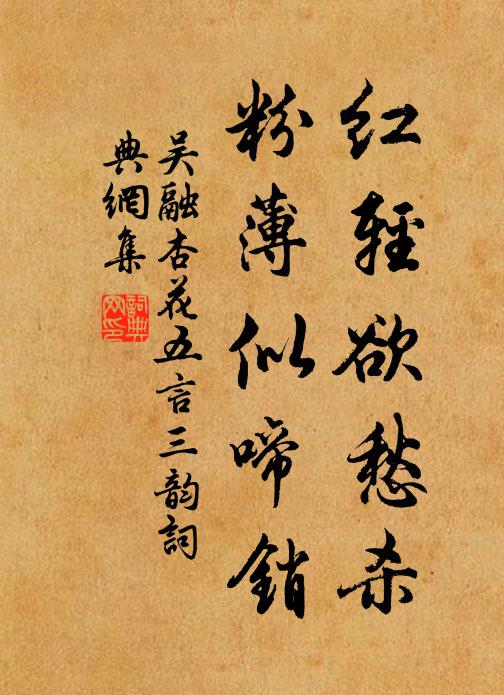 红轻欲愁杀
粉薄似啼销
吴融杏花五言三韵词
典網集
詞典網印